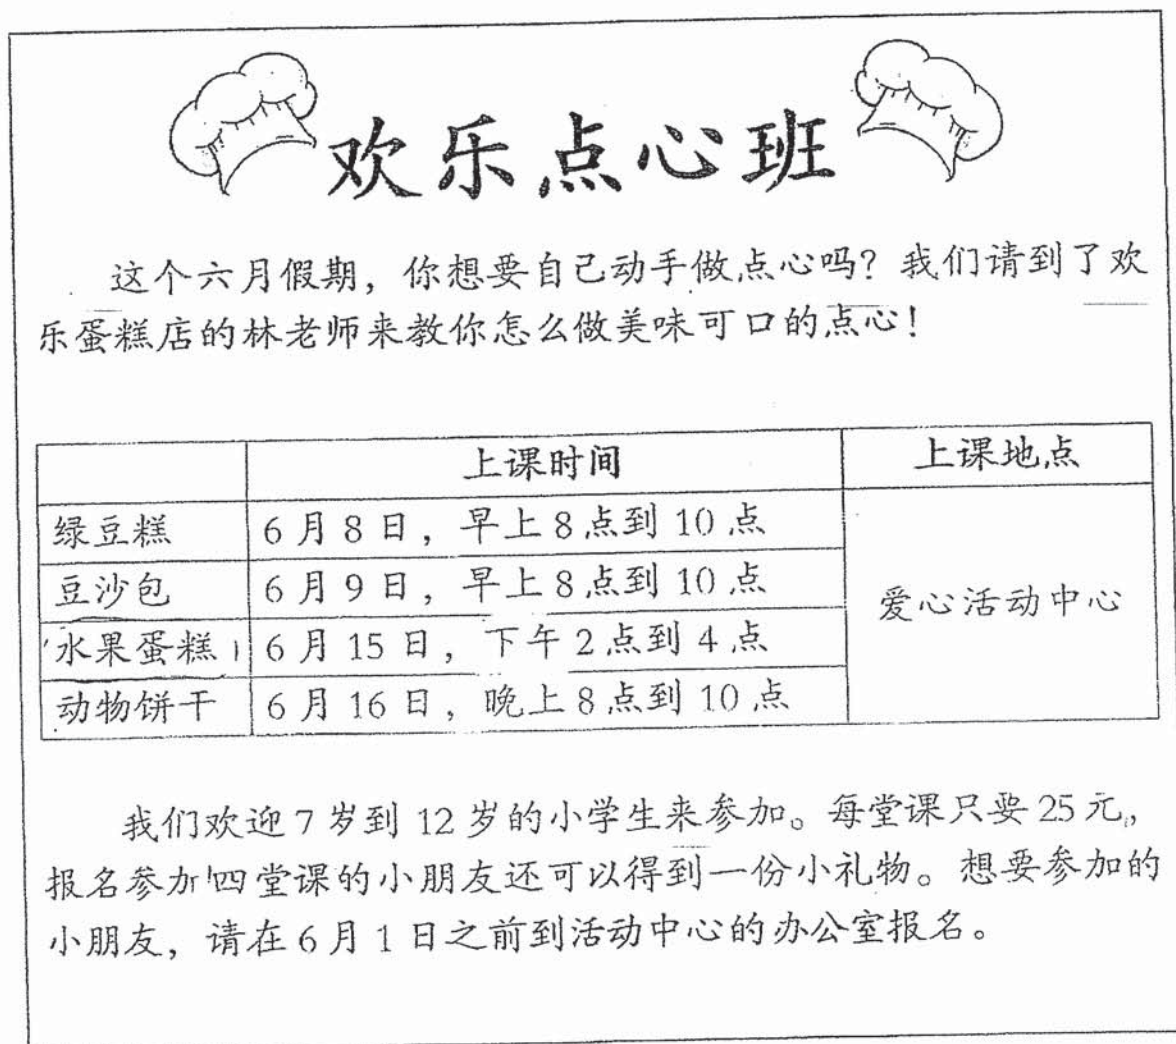 欢乐点心班
这个六月假期，你想要自己动手做点心吗？我们请到了欢
乐蛋糕店的林老师来教你怎么做美味可口的点心！
上课时间 上课地点
绿豆糕 6月8日，早上8点到10点
豆沙包 6月9日，早上8点到10点
爱心活动中心
水果蛋糕 6月15日，下午2点到4点
动物饼干 6月16日，晚上8点到10点
我们欢迎7岁到12岁的小学生来参加。每堂课只要25元。
报名参加四堂课的小朋友还可以得到一份小礼物。想要参加的
小朋友，请在6月1日之前到活动中心的办公室报名。